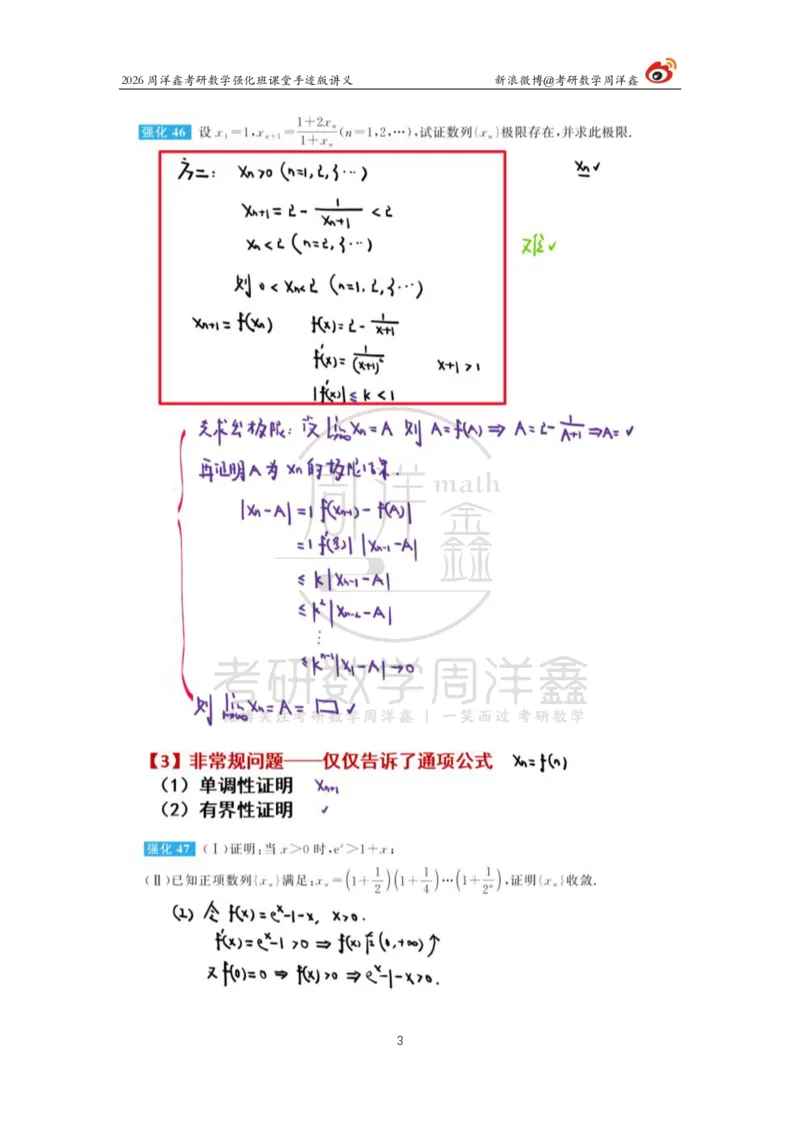 2026 周洋鑫考研数学强化班课堂手迹版讲义 新浪微博@考研数学周洋鑫
强化 46 设 x₁=1,xₙ₊₁=(1+2xₙ)/(1+xₙ)(n=1,2,…),试证数列{xₙ}极限存在,并求此极限.
方二: xₙ>0 (n=1,2,3…) xₙ✓
xₙ₊₁=2-1/(xₙ+1)<2
xₙ<2 (n=2,3…) 难✓
则 0<xₙ<2 (n=1,2,3…)
xₙ₊₁=f(xₙ) f(x)=2-1/(x+1)
f'(x)=1/(x+1)² x+1>1
|f'(x)|≤k<1
先求出极限: 设 lim(n→∞) xₙ=A 则 A=f(A)⇒A=2-1/(A+1)⇒A=✓
再证明A为xₙ的极限结果.
|xₙ-A|=|f(xₙ₋₁)-f(A)|
=|f'(ξ)||xₙ₋₁-A|
≤k|xₙ₋₁-A|
≤k²|xₙ₋₂-A|
⋮
≤kⁿ⁻¹|x₁-A|→0
则 lim(n→∞) xₙ=A=□✓
周洋鑫 math
考研数学周洋鑫
关注考研数学周洋鑫 | 一笑而过 考研数学
【3】非常规问题——仅仅告诉了通项公式 xₙ=f(n)
(1)单调性证明 xₙ₊₁
(2)有界性证明 ✓
强化 47 (Ⅰ)证明:当 x>0 时,eˣ>1+x;
(Ⅱ)已知正项数列{xₙ}满足:xₙ=(1+1/2)(1+1/4)…(1+1/2ⁿ),证明{xₙ}收敛.
(1) 令 f(x)=eˣ-1-x, x>0.
f'(x)=eˣ-1>0⇒f(x)在(0,+∞)↑
又f(0)=0⇒f(x)>0⇒eˣ-1-x>0.
3